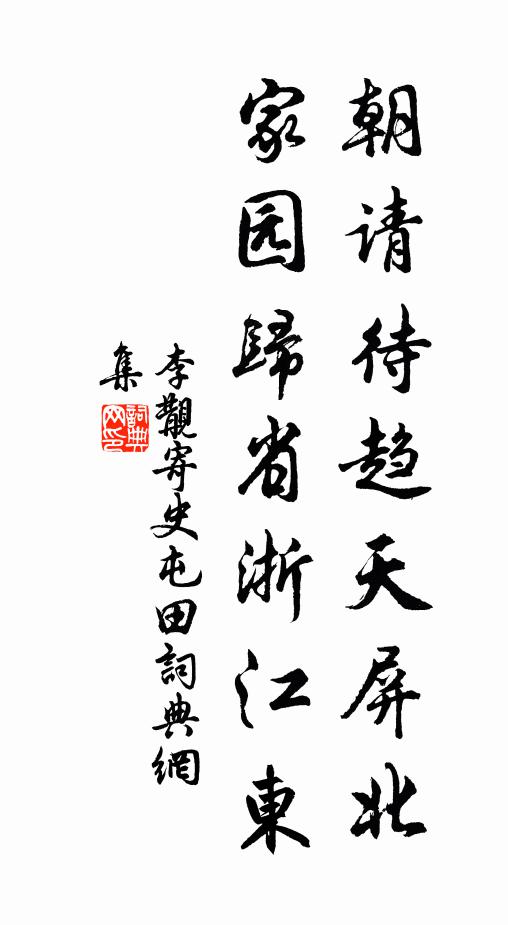 朝请待趋天屏北
家园歸省浙江東
李觀寄史屯田詞典網
集
詞典
网印